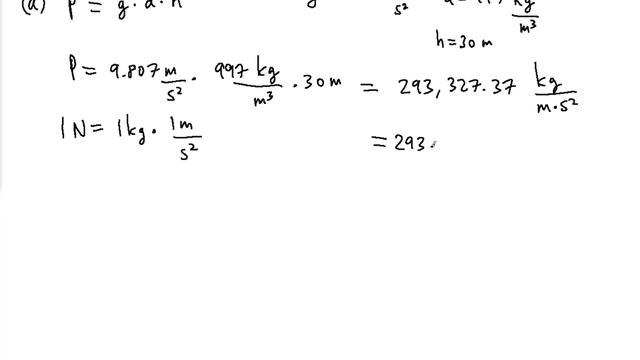 (a) P = g · d · h
s² kg/m³
h = 30 m
P = 9.807 m/s² · 997 kg/m³ · 30 m = 293,327.37 kg/m·s²
1 N = 1 kg · 1 m/s² = 293.